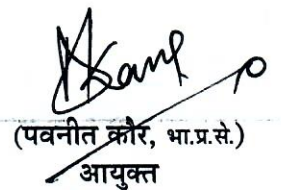 (पवनीत कौर, भा.प्र.से.)
आयुक्त